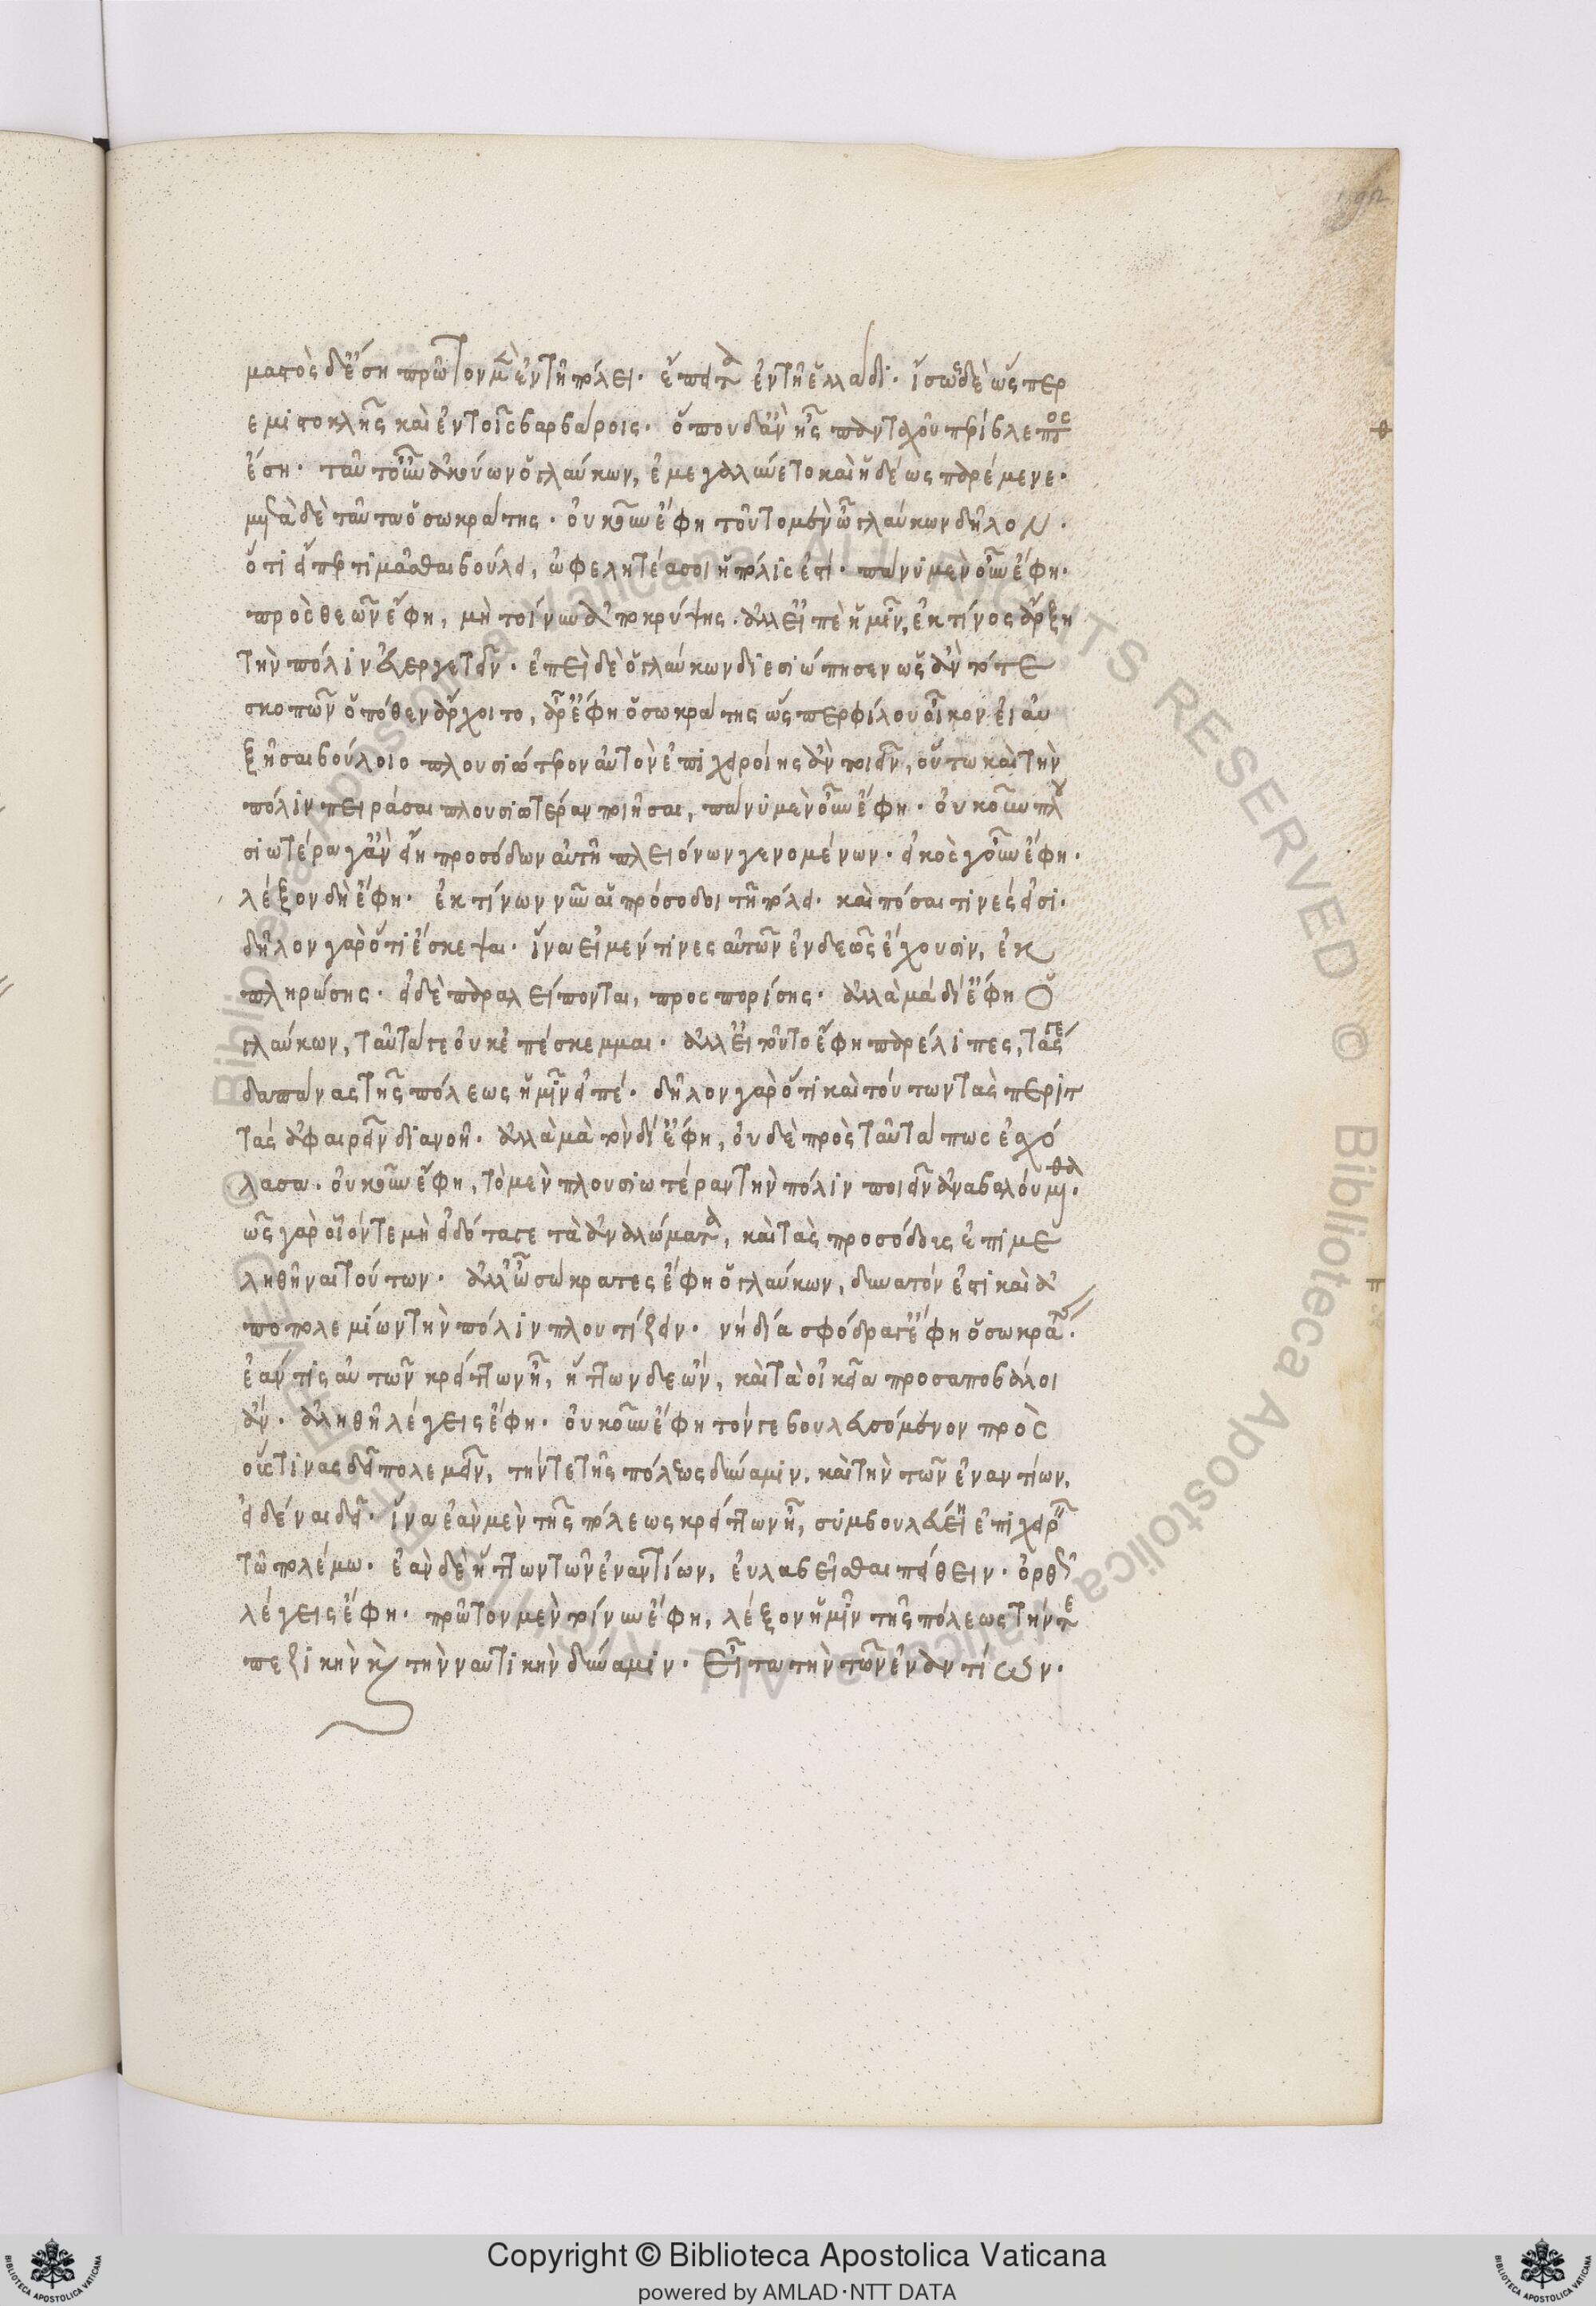 μαστὸς δ' ἔση πρῶτον μὲν ἐν τῆ πόλει. ἔπειτα ἐν τῆ ἑλλάδι. ἴσως δὲ ὥσπερ
εμιστοκλῆς καὶ ἐν τοῖς βαρβάροις. ὅπου δ' ἂν ἦς πανταχοῦ περίβλεπτος
ἔση. ταῦτ' οὖν ἀκούων ὁ γλαύκων, ἐμεγαλύνετο καὶ ἡδέως παρέμενε.
μετὰ δὲ ταῦτα ὁ σωκράτης. οὐκοῦν ἔφη τοῦτο μὲν ὦ γλαύκων δῆλον.
ὅτι εἴπερ τιμᾶσθαι βούλει, ὠφελητέα σοι ἡ πόλις ἐστί. πάνυ μὲν οὖν ἔφη.
πρὸς θεῶν ἔφη, μὴ τοίνυν ἀποκρύψης. ἀλλ' εἰπὲ ἡμῖν, ἐκ τίνος ἄρξη
τὴν πόλιν εὐεργετεῖν. ἐπεὶ δὲ ὁ γλαύκων διεσιώπησεν ὡς ἂν τότε
σκοπῶν ὁπόθεν ἄρχοιτο, ἆρ' ἔφη ὁ σωκράτης ὥσπερ φίλου οἶκον εἰ αὐ
ξῆσαι βούλοιο πλουσιώτερον αὐτὸν ἐπιχειροίης ἂν ποιεῖν, οὕτω καὶ τὴν
πόλιν πειράσαι πλουσιωτέραν ποιῆσαι, πάνυ μὲν οὖν ἔφη. οὐκοῦν πλου
σιωτέρα γ' ἂν εἴη προσόδων αὐτῆ πλειόνων γενομένων. εἰκὸς γοῦν ἔφη.
λέξον δὴ ἔφη. ἐκ τίνων νῦν αἱ πρόσοδοι τῆ πόλει. καὶ πόσαι τινές εἰσι.
δῆλον γὰρ ὅτι ἔσκεψαι. ἵνα εἰ μέν τινες αὐτῶν ἐνδεῶς ἔχουσιν, ἐκ
πληρώσης. εἰ δὲ παραλείπονται, προσπορίσης. ἀλλὰ μὰ δί' ἔφη ὁ
γλαύκων, ταῦτά γε οὐκ ἐπέσκεμμαι. ἀλλ' εἰ τοῦτο ἔφη παρέλιπες, τάς γε
δαπάνας τῆς πόλεως ἡμῖν εἰπέ. δῆλον γὰρ ὅτι καὶ τούτων τὰς περιτ
τὰς ἀφαιρεῖν διανοῆ. ἀλλὰ μὰ τὸν δί' ἔφη, οὐδὲ πρὸς ταῦτά πως ἐσχό
λασα. οὐκοῦν ἔφη, τὸ μὲν πλουσιωτέραν τὴν πόλιν ποιεῖν ἀναβαλούμεθα.
πῶς γὰρ οἷόν τε μὴ εἰδότα γε τὰ ἀναλώματα, καὶ τὰς προσόδους ἐπιμε
ληθῆναι τούτων. ἀλλ' ὦ σώκρατες ἔφη ὁ γλαύκων, δυνατόν ἐστι καὶ ἀ
πὸ πολεμίων τὴν πόλιν πλουτίζειν. νὴ δία σφόδρα γ' ἔφη ὁ σωκράτης.
ἐάν τις αὐτῶν κρείττων ἦ, ἥττων δὲ ὢν, καὶ τὰ οἰκεῖα προσαποβάλοι
ἄν. ἀληθῆ λέγεις ἔφη. οὐκοῦν ἔφη τόν γε βουλευσόμενον πρὸς
οὕστινας δεῖ πολεμεῖν, τήν τε τῆς πόλεως δύναμιν, καὶ τὴν τῶν ἐναντίων,
εἰδέναι δεῖ. ἵνα ἐὰν μὲν τῆς πόλεως κρείττων ἦ, συμβουλεύη ἐπιχειρεῖν
τῶ πολέμω. ἐὰν δὲ ἥττων τῶν ἐναντίων, εὐλαβεῖσθαι πείθειν. ὀρθῶς
λέγεις ἔφη. πρῶτον μὲν τοίνυν ἔφη, λέξον ἡμῖν τῆς πόλεως τήν τε
πεζικὴν καὶ τὴν ναυτικὴν δύναμιν. Εἶτα τὴν τῶν ἐναντίων.
Copyright © Biblioteca Apostolica Vaticana
powered by AMLAD·NTT DATA